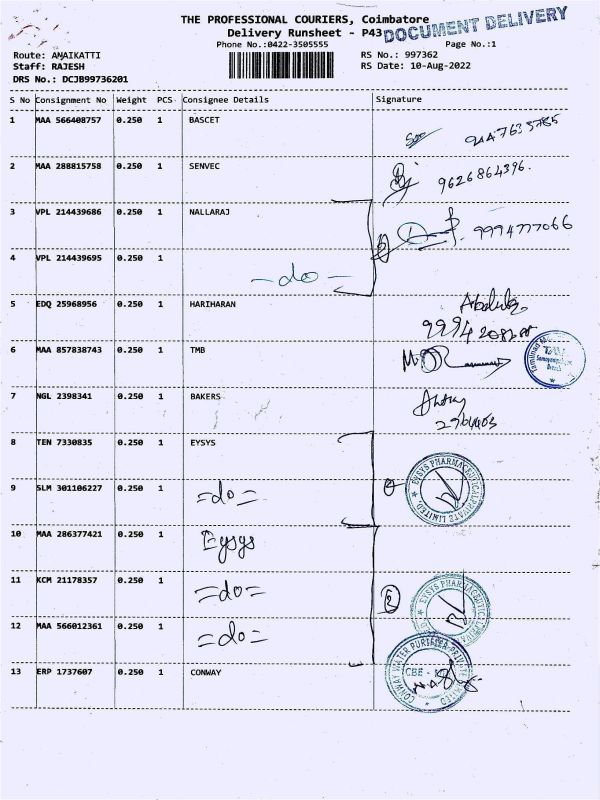 THE PROFESSIONAL COURIERS, Coimbatore
Delivery Runsheet - P43
DOCUMENT DELIVERY
Phone No.:0422-3505555
Page No.:1
Route: ANAIKATTI
RS No.: 997362
Staff: RAJESH
RS Date: 10-Aug-2022
DRS No.: DCJB99736201
S No Consignment No Weight PCS Consignee Details Signature
1 MAA 566408757 0.250 1 BASCET
2 MAA 288815758 0.250 1 SENVEC 9626864396.
3 VPL 214439686 0.250 1 NALLARAJ 9994777066
4 VPL 214439695 0.250 1 -do-
5 EDQ 25968956 0.250 1 HARIHARAN
6 MAA 857838743 0.250 1 TMB
7 NGL 2398341 0.250 1 BAKERS
8 TEN 7330835 0.250 1 EYSYS
EYSYS PHARMACEUTICAL PRIVATE LIMITED
9 SLM 301106227 0.250 1 =do=
10 MAA 286377421 0.250 1 Eysys
11 KCM 21178357 0.250 1 =do= 2
EYSYS PHARMACEUTICAL PRIVATE
12 MAA 566012361 0.250 1 =do=
13 ERP 1737607 0.250 1 CONWAY
CONWAY WATER PURIFIER PRIVATE LIMITED
CBE